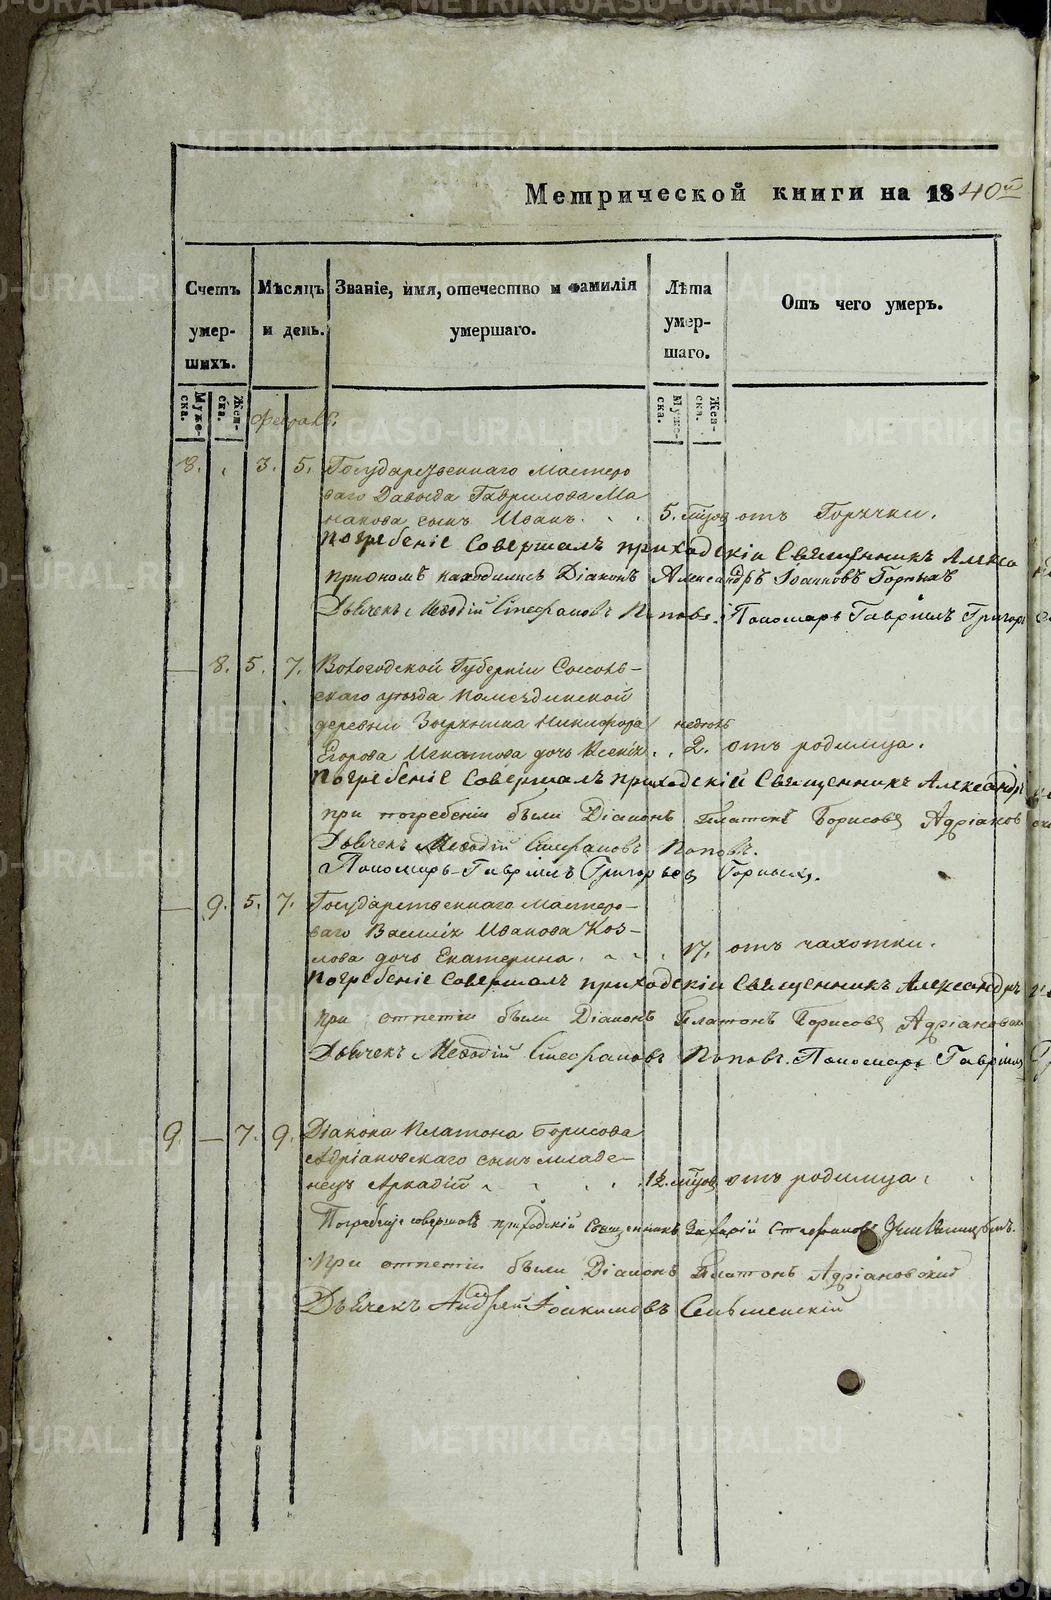 Метрической книги на 1840й
Счетъ умер-шихъ.
Мѣсяцъ и день.
Званіе, имя, отечество и фамилія умершаго.
Лѣта умер-шаго.
Отъ чего умеръ.
Муже-ска.
Жен-ска.
Муже-ска.
Жен-ска.
8. 3. 5. Государственнаго Мастеро
ваго Давыда Гаврилова Ма
накова сынъ Иванъ. 5. отъ Горячки.
Погребеніе Совершалъ приходскіи Священникъ Алекса
находились Діаконъ Александръ Іоанновъ Горныхъ
Дьячекъ Меѳодій Стефановъ Поповъ. Пономарь Гавріилъ Григорь
8. 5. 7. Вологодской Губерніи Соколь-
скаго уѣзда
деревни Зырянина Никифора недѣль
Егорова Игнатова дочь Ксенія. 2. отъ родимца.
Погребеніе Совершалъ приходскій Священникъ Александръ
при погребеніи были Діаконъ Платонъ Борисовъ Адріанов
Дьячекъ Меѳодій Стефановъ Поповъ.
Пономарь Гавріилъ Григорьевъ Горныхъ.
9. 5. 7. Государственнаго Мастеро-
ваго Василія Иванова Коз-
лова дочь Екатерина. 17. отъ чахотки.
Погребеніе Совершалъ приходскіи Священникъ Александръ
при отпетіи были Діаконъ Платонъ Борисовъ Адріановскі
Дьячекъ Меѳодій Стефановъ Поповъ. Пономарь Гавріилъ
9. — 7. 9. Діакона Платона Борисова
Адріановскаго сынъ младе-
нецъ Аркадій 1½ отъ родимца.
Погребеніе совершалъ приходскій Священникъ Захарій Стефановъ
При отпетіи были Діаконъ Платонъ Адріановскій
Дьячекъ Андрей Іоакимовъ
METRIKI.GASO-URAL.RU